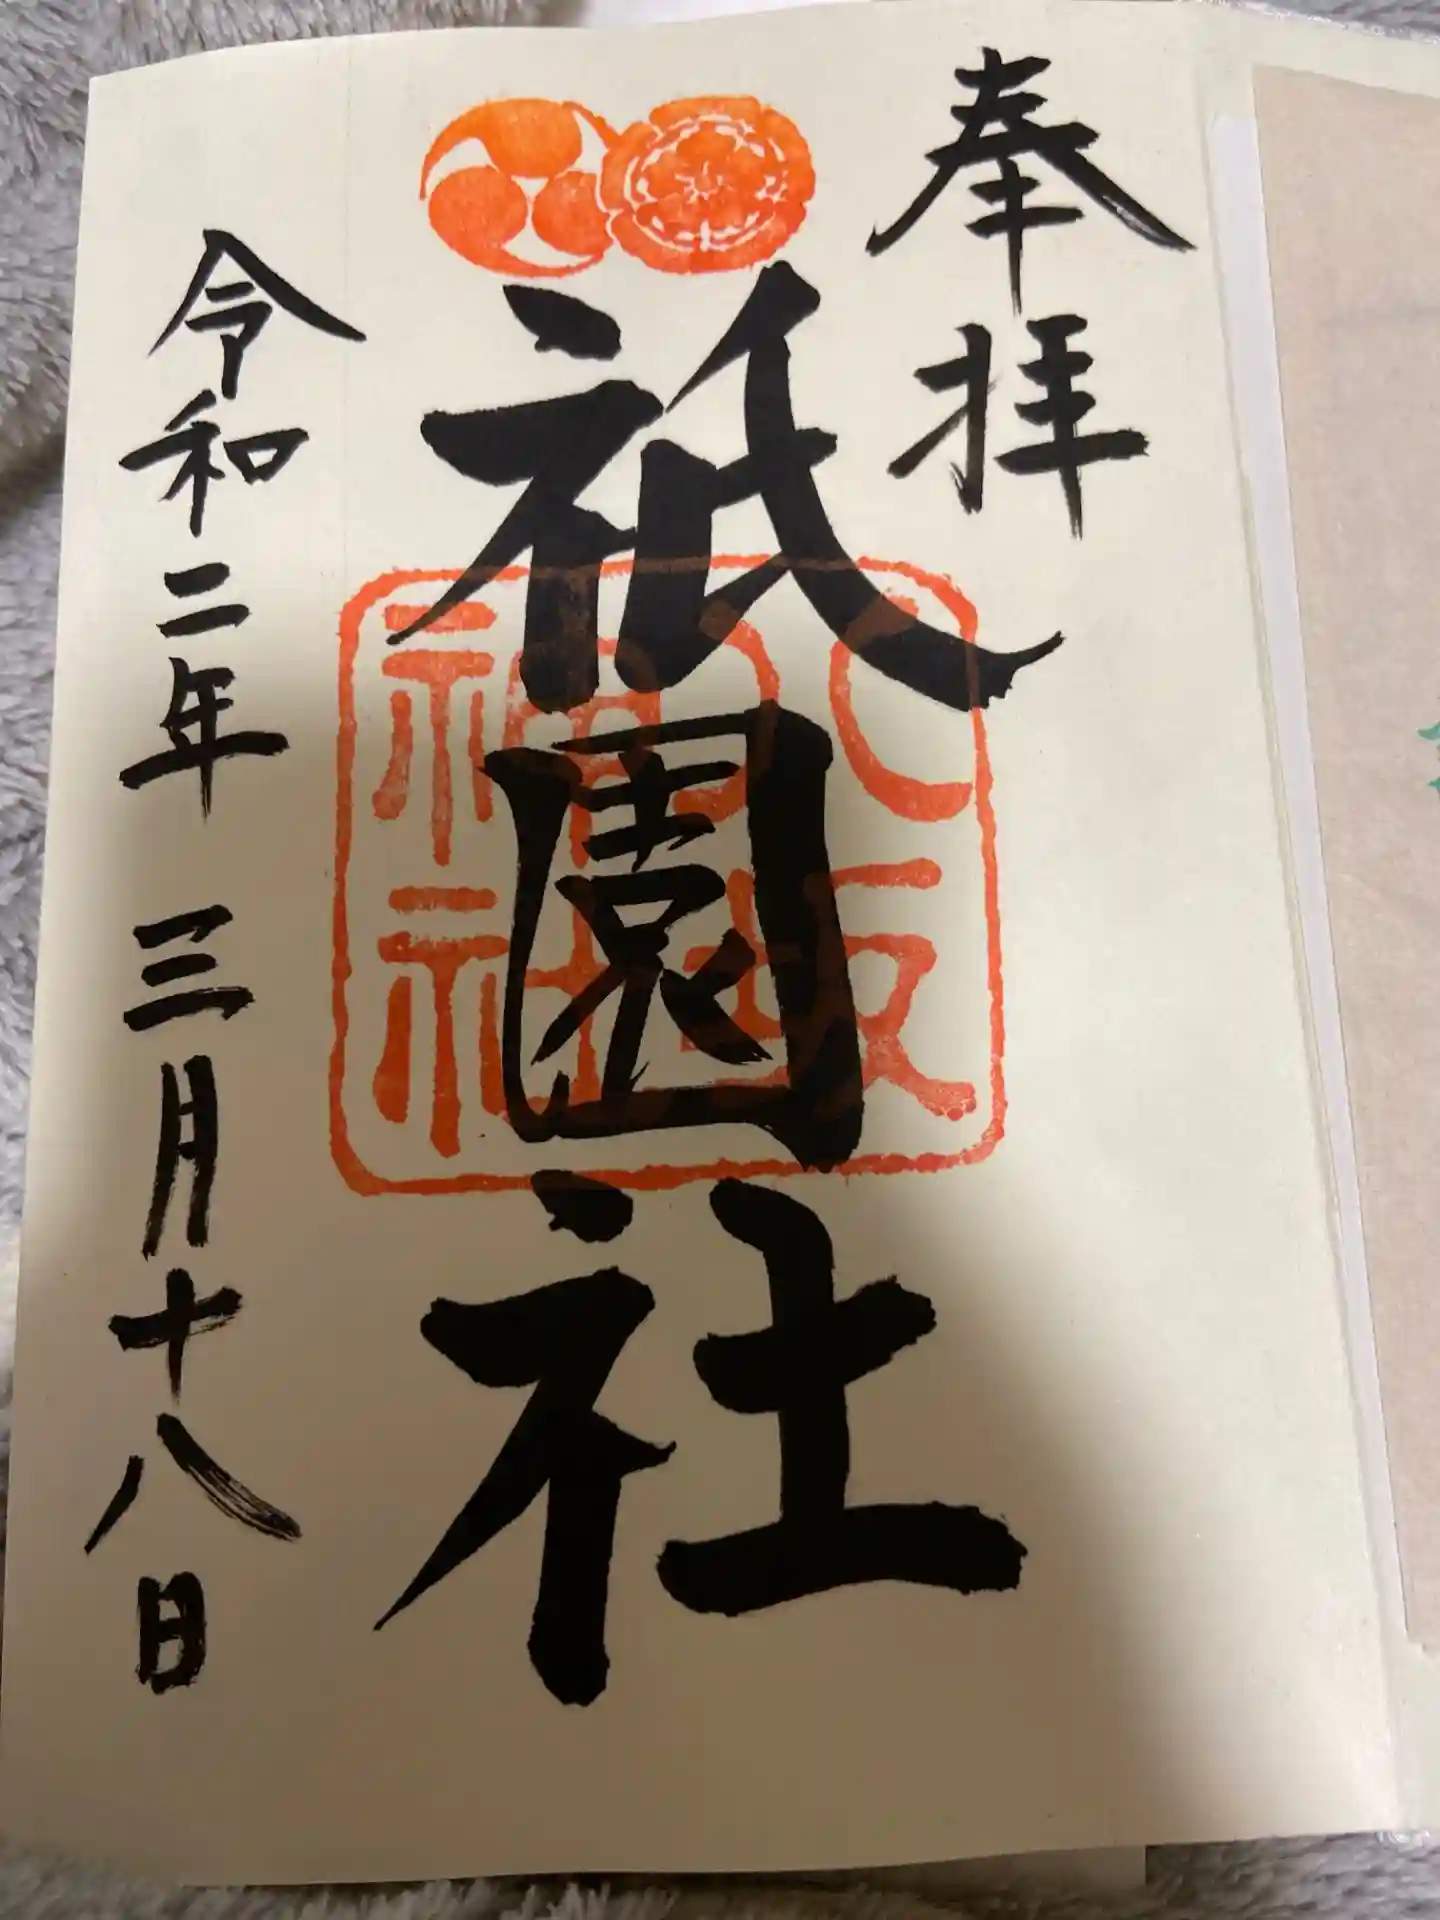 奉拝
祇園社
八坂神社
令和二年 三月十八日